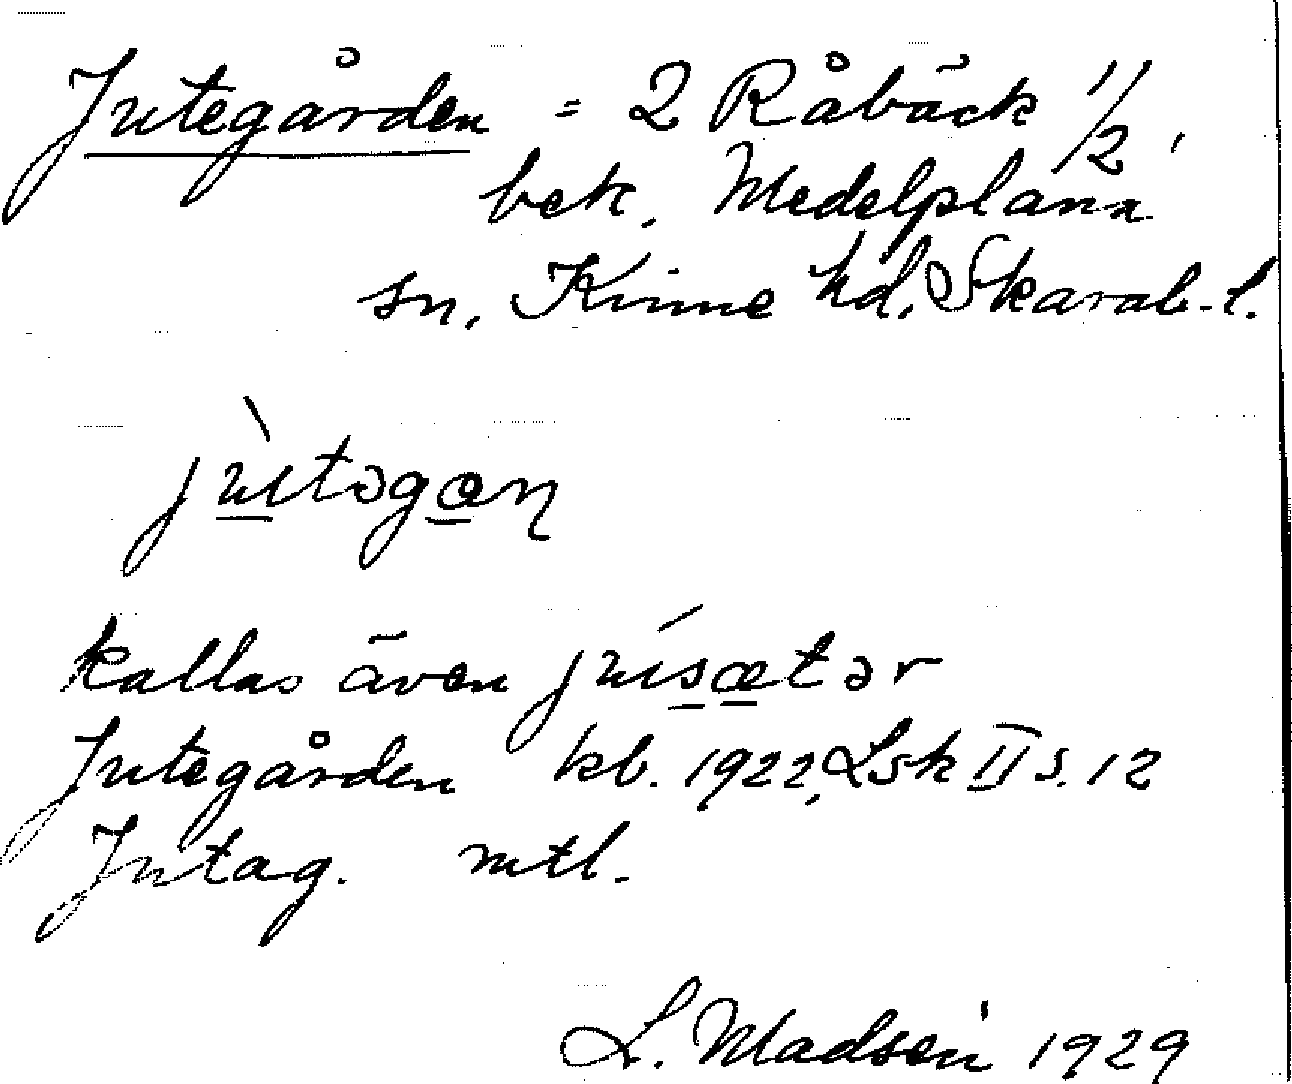 Jutegården = 2 Råbäck 1/2,
bek. Medelplana
sn, Kinne hd. Skarab. l.
jùtəgan
kallas även júsætər
Jutegården kb. 1922, Lsk II s. 12
Jutag. mtl.
L. Madsén 1929